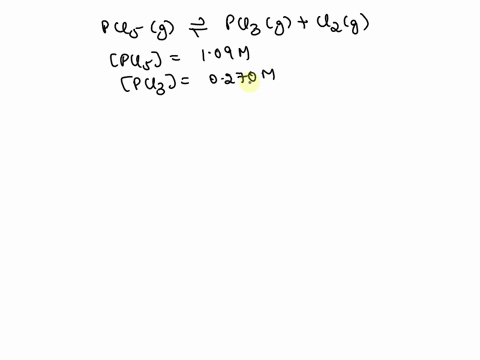 PCl5 (g) ⇌ PCl3 (g) + Cl2 (g)
[PCl5] = 1.09 M
[PCl3] = 0.270 M